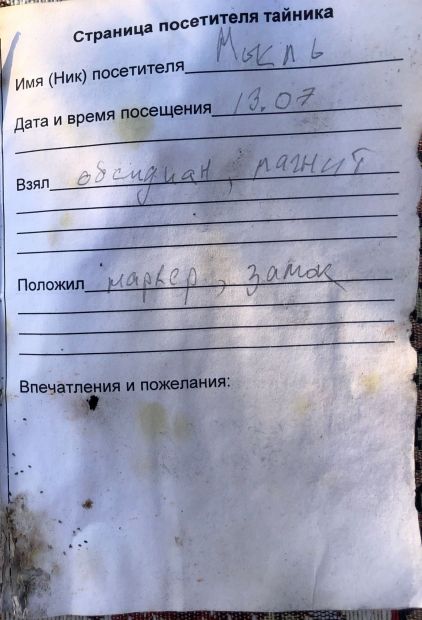 Страница посетителя тайника
Имя (Ник) посетителя Мыкль
Дата и время посещения 13.07
Взял обсидиан, магнит
Положил маркер, замок
Впечатления и пожелания: